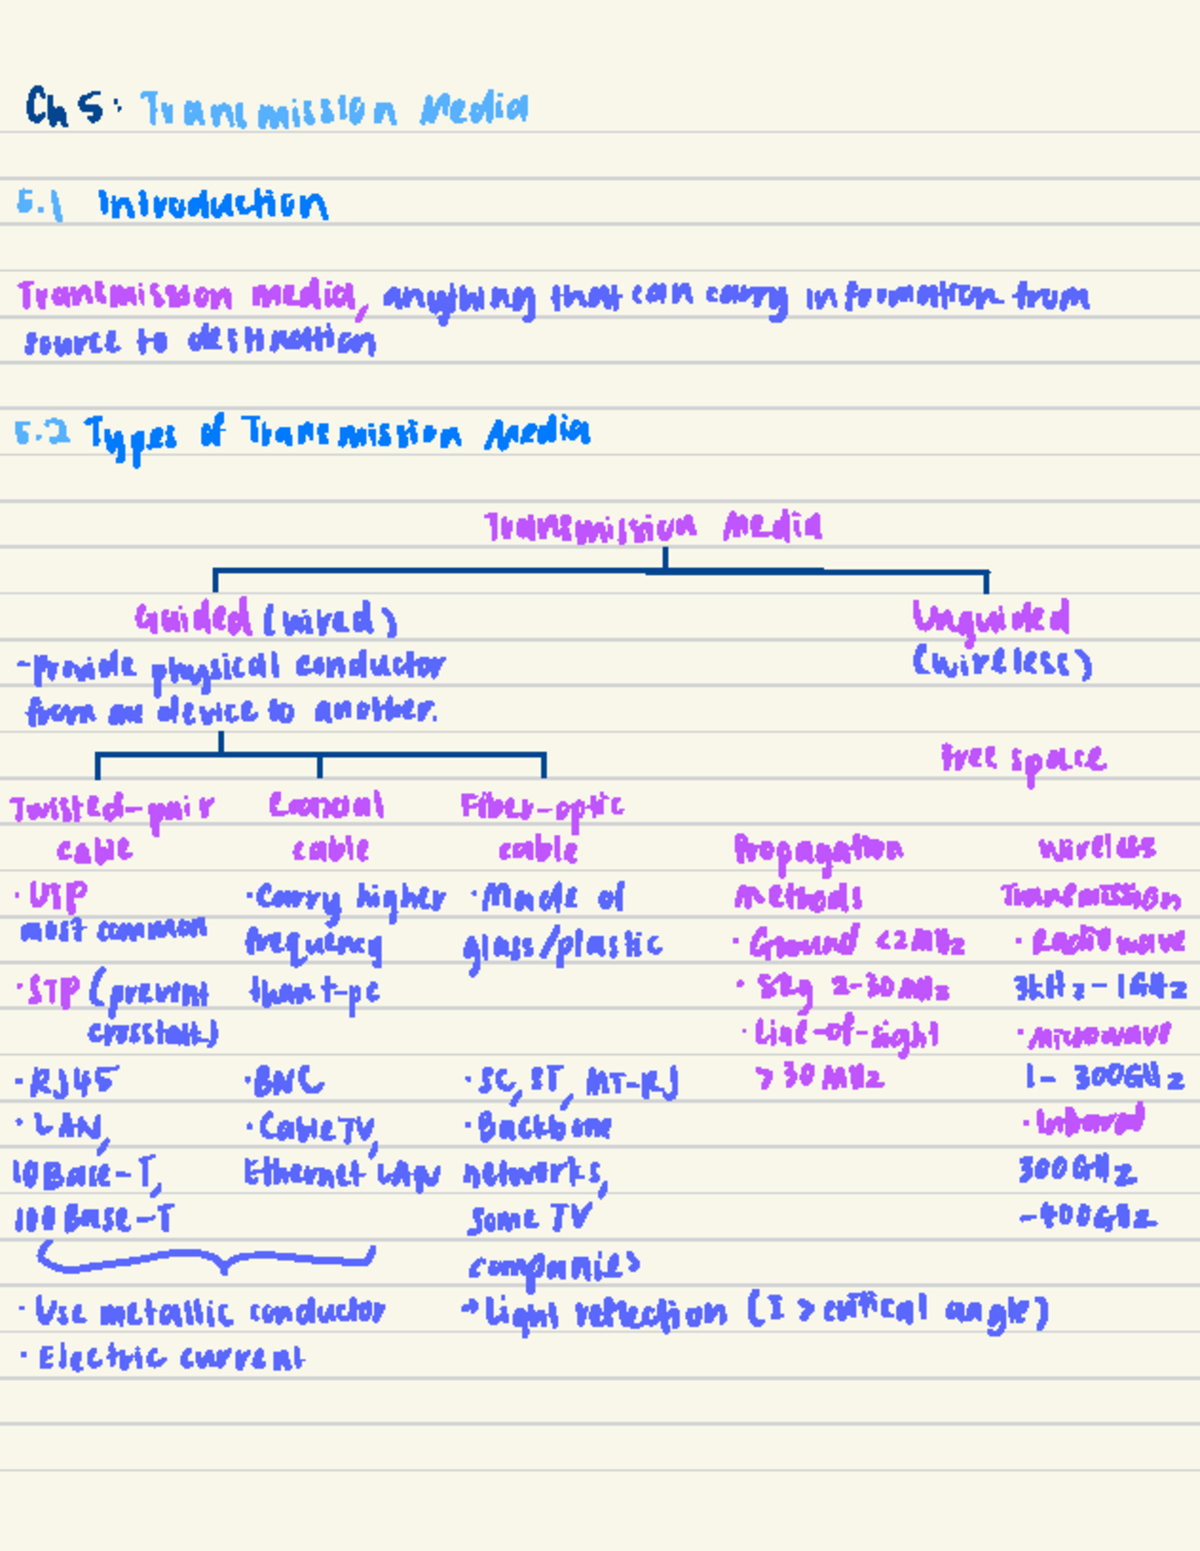 Ch 5: Transmission Media
5.1 Introduction
Transmission media, anything that can carry information from
source to destination
5.2 Types of Transmission Media
Transmission Media
Guided (wired)
-Provide physical conductor
from one device to another.
Unguided
(wireless)
free space
Twisted-pair
cable
· UTP
most common
· STP (prevent
crosstalk)
· RJ45
· LAN,
10Base-T,
100Base-T
Coaxial
cable
· Carry higher
frequency
than t-pc
· BNC
· Cable TV,
Ethernet LAN
Fiber-optic
cable
· Made of
glass/plastic
· SC, ST, MT-RJ
· Backbone
networks,
some TV
companies
→ Light reflection (I > critical angle)
· Use metallic conductor
· Electric current
Propagation
Methods
· Ground <2MHz
· Sky 2-30MHz
· Line-of-sight
> 30 MHz
Wireless
Transmission
· Radiowave
3kHz - 1GHz
· microwave
1 - 300GHz
· Infrared
300GHz
-400GHz